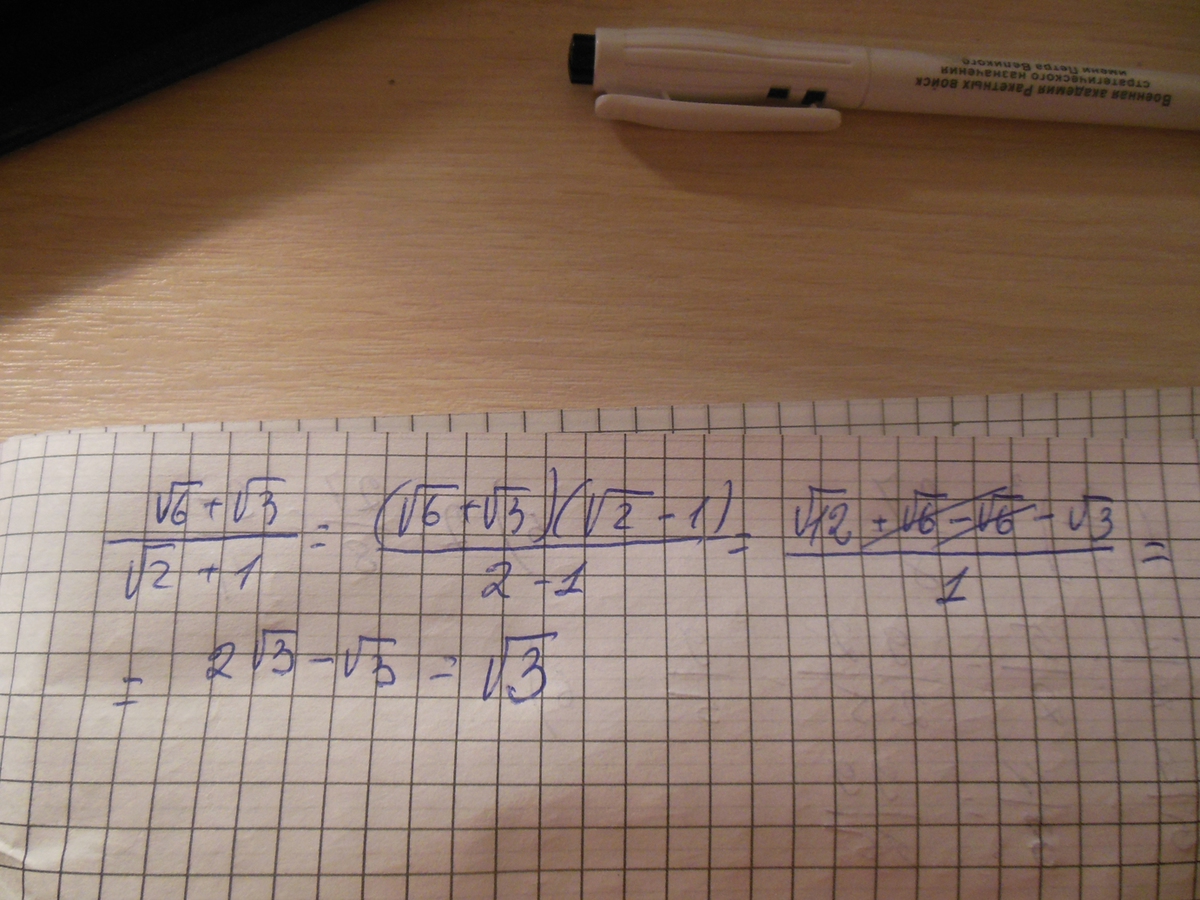 Военная академия Ракетных войск
стратегического назначения
имени Петра Великого
(√6 + √3)/(√2 + 1) = ((√6 + √3)(√2 - 1))/(2 - 1) = (√12 + √6 - √6 - √3)/1 =
= 2√3 - √3 = √3